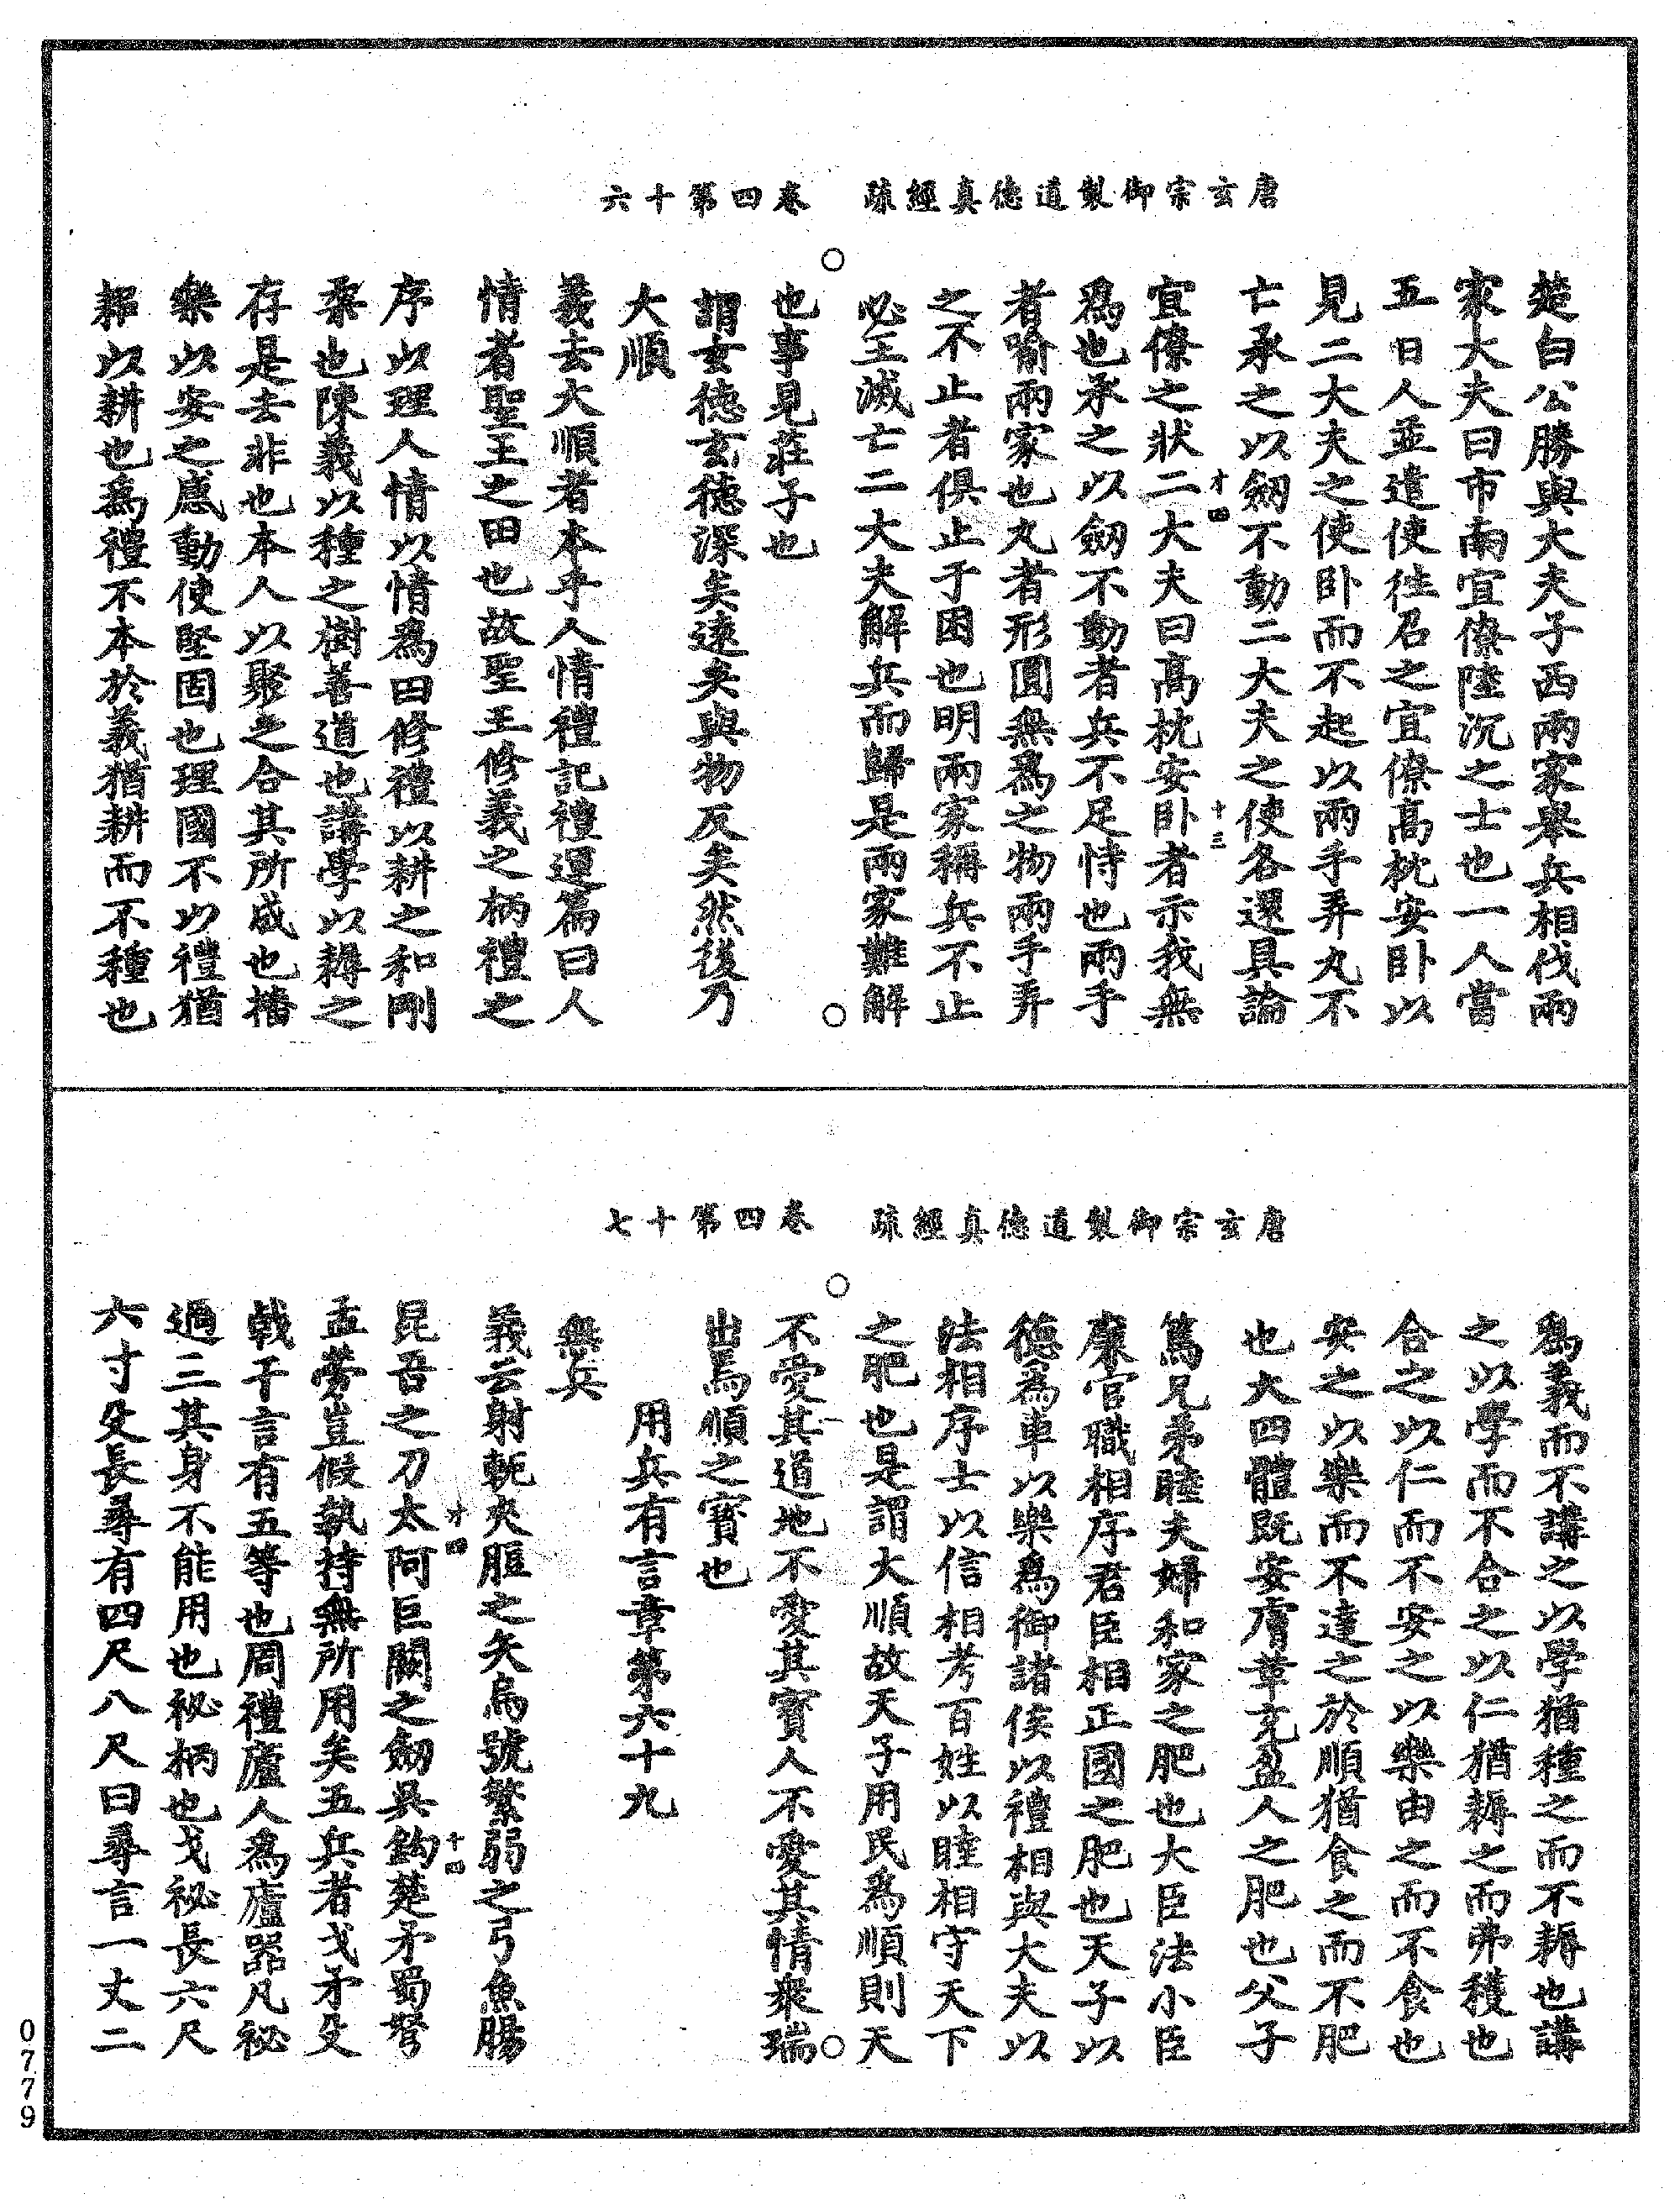 唐玄宗御製道德真經疏　卷四第十六
楚白公勝與大夫子西兩家舉兵相伐兩
家大夫曰市南宜僚陸沉之士也一人當
五日人並遣使往召之宜僚高枕安卧以
見二大夫之使卧而不起以兩手弄丸不
亡承之以劒不動二大夫之使各還具論
才四
十三
宜僚之狀二大夫曰高枕安卧者示我無
爲也承之以劒不動者兵不足恃也兩手
者喻兩家也丸者形圓無爲之物兩手弄
之不止者俱止于困也明兩家稱兵不止
必主滅亡二大夫解兵而歸是兩家難解
也事見莊子也
謂玄德玄德深矣遠矣與物反矣然後乃
大順
義去大順者本乎人情禮記禮運篇曰人
情者聖王之田也故聖王修義之柄禮之
序以理人情以情爲田修禮以耕之和剛
柔也陳義以種之樹善道也講學以耨之
存是去非也本人以聚之合其所盛也播
樂以安之感動使堅固也理國不以禮猶
耜以耕也爲禮不本於義猶耕而不種也
唐玄宗御製道德真經疏　卷四第十七
爲義而不講之以學猶種之而不耨也講
之以學而不合之以仁猶耨之而弗穫也
合之以仁而不安之以樂由之而不食也
安之以樂而不達之於順猶食之而不肥
也大四體既安膚革充盈人之肥也父子
篤兄弟睦夫婦和家之肥也大臣法小臣
廉官職相序君臣相正國之肥也天子以
德爲車以樂爲御諸侯以禮相與大夫以
法相序士以信相考百姓以睦相守天下
之肥也是謂大順故天子用民爲順則天
不愛其道地不愛其寳人不愛其情衆瑞
出焉順之寳也
用兵有言章第六十九
無兵
義云射軛夾脰之矢烏號繁弱之弓魚腸
才四
十四
昆吾之刀太阿巨闕之劒吳鈎楚矛蜀弩
孟勞豈假執持無所用矣五兵者戈矛殳
戟干言有五等也周禮廬人爲廬器凡祕
過三其身不能用也祕柄也戈祕長六尺
六寸殳長尋有四尺八尺曰尋言一丈二
0779